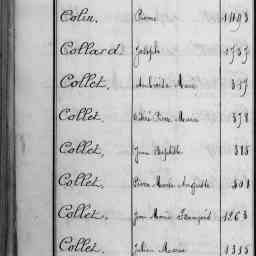 Colin, Pierre 1093
Collard Joseph 1737
Collet, Ambroise Marie 337
Collet, Pierre Marie 378
Collet, Jean Baptiste 385
Collet, Pierre Marie Auguste 801
Collet, Jean Marie François 1263
Collet, Julien Marie 1315